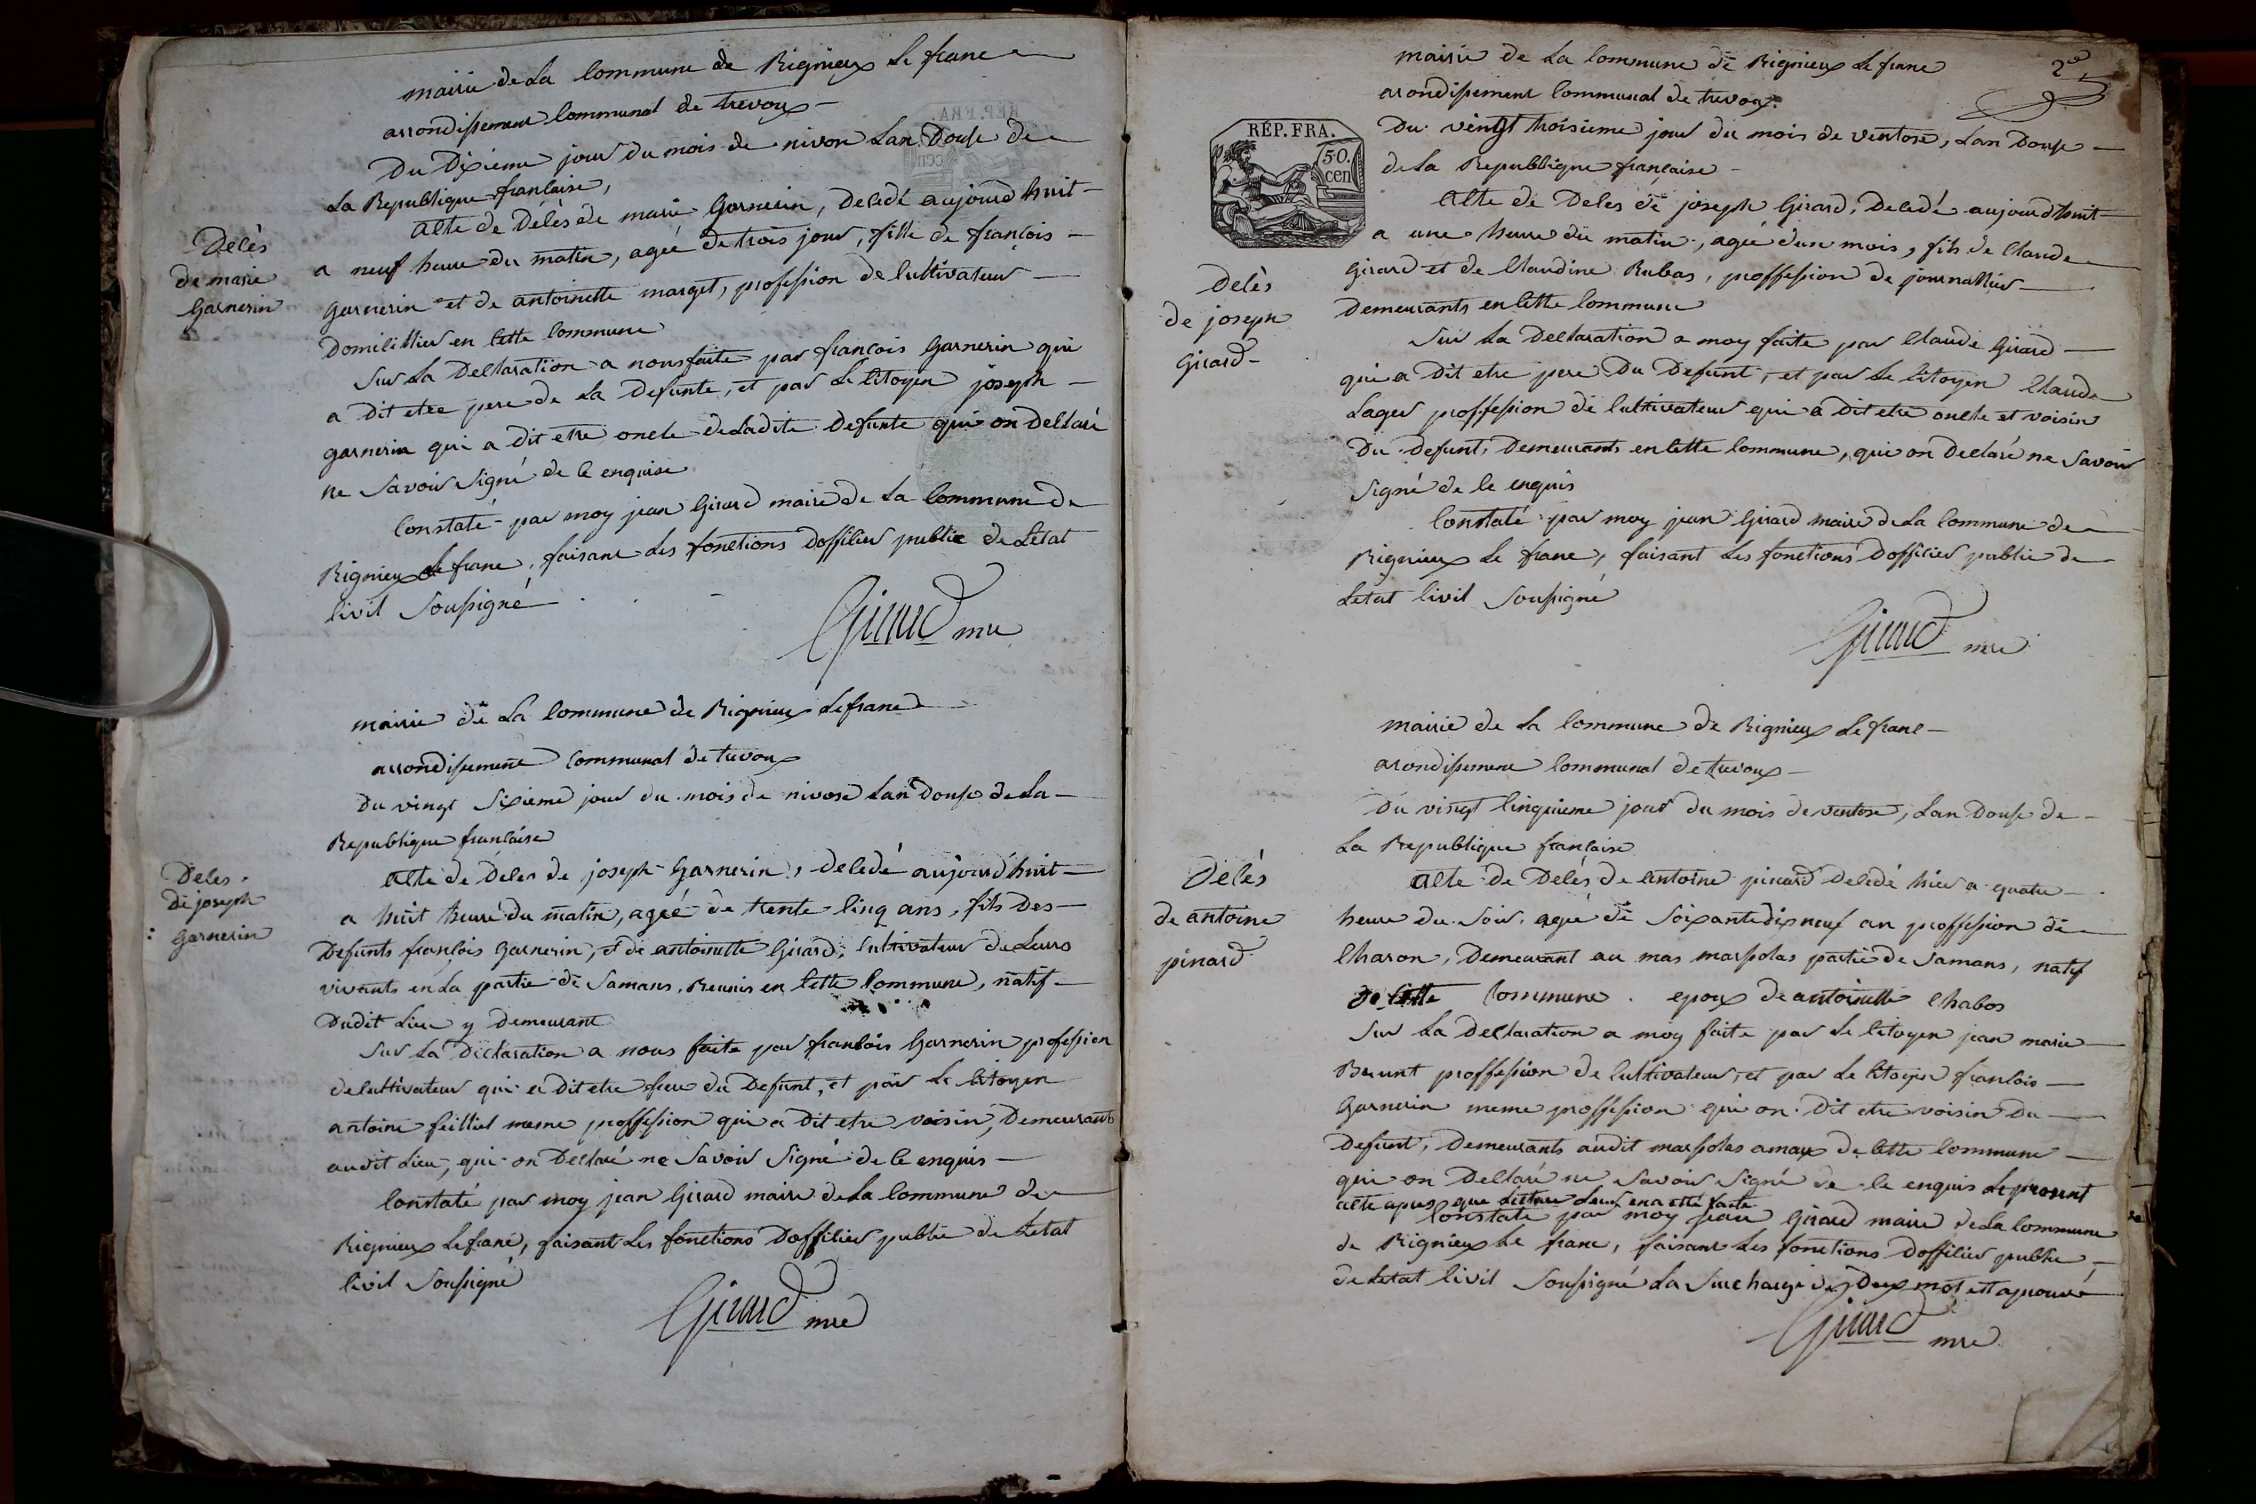 mairie de La Commune de Rignieux Le franc
arrondissement Communal de trevoux
Du Dixieme jour du mois de nivose Lan Douse de
La Republique française,
Acte de Décès de marie Garnerin, Decedé aujourd huit
Decès
de marie
Garnerin
a neuf heure du matin, agée de trois jour, fille de françois
Garnerin et de antoinette marget, profession de Cultivateur
Domicillier en Cette Commune
Sur La Declaration a nous faite par francois Garnerin qui
a Dit etre pere de La Defunte, et par Le Citoyen joseph
garnerin qui a dit etre oncle de Ladite Defunte qui on Declaré
ne Savoir Signé de Ce enquise
Constaté par moy jean Girard maire de La Commune de
Rignieux Le franc, faisant Les fonctions Dofficier public de Letat
Civil Soussigné
Girard mre
mairie de La Commune de Rignieux Le franc
arrondissement Communal de trevoux
Du vingt Sixieme jour du mois de nivose Lan Douse de La
Republique française
Acte de Deces de joseph Garnerin, decedé aujourd'huit
Deces
de joseph
Garnerin
a huit heure du matin, ageé de trente Cinq ans, fils Des
Defunts françois Garnerin, & de antoinette Girard, Cultivateur de Leurs
vivants en La partie de Samans, Reunis en Cette Commune, natif
Dudit Lieu y Demeurant
Sur La Déclaration a nous faite par françois Garnerin profession
de Cultivateur qui a Dit etre frere du Defunt, et par Le Citoyen
antoine feilliet meme proffession qui a Dit etre voisin, Demeurants
audit Lieu, qui on Declaré ne Savoir Signé de Ce enquis
Constaté par moy jean Girard maire de La Commune de
Rignieux Le franc, faisant Les fonctions Dofficier public de Letat
Civil Soussigné
Girard mre
2e
mairie de La Commune de Rignieux Le franc
arondissement Communal de trevoux
RÉP. FRA.
50.
cen
Du vingt troisieme jour du mois de ventose, Lan Douse
de La Republique française
Acte de Deces de joseph Girard, Decedé aujourd'huit
a une heure du matin, ageé d'un mois, fils de Claude
Girard et de Claudine Rubas, proffession de journallier
Decès
de joseph
Girard
Demeurants en Cette Commune
Sur La Declaration a moy faite par Claude Girard
qui a Dit etre pere Du Defunt, et par Le Citoyen Claude
Lager proffession de Cultivateur qui a Dit etre oncle et voisin
Du Defunt, Demeurants en Cette Commune, qui on Declaré ne Savoir
Signé de Ce enquis
Constaté par moy jean Girard maire de La Commune de
Rignieux Le franc, faisant Les fonctions Dofficier public de
Letat Civil Soussigné
Girard mre
mairie de La Commune de Rignieux Le franc
arondissement Communal de trevoux
Du vingt Cinquieme jour du mois de ventose, Lan Douse de
La Republique française
Acte de Decés de Antoine pinard Decedé hier a quatre
Decès
de antoine
pinard
heure du Soir, ageé de Soixante dix neuf an proffession de
Charon, Demeurant au mas maspolas partie de Samans, natif
de Cette Commune. epoux de antoinette Chabos
Sur La Declaration a moy faite par Le Citoyen jean marie
Brunt proffession de Cultivateur, et par Le Citoyen francois
Garnerin meme proffession qui on Dit etre voisin Du
Defunt, Demeurants audit maspolas amax de Cette Commune
qui on Declaré ne Savoir Signé de Ce enquis Le present
acte apres que Lecture Leur en a etté faite
Constaté par moy jean Girard maire de La Commune
de Rignieux Le franc, faisant Les fonctions Dofficier public
de Letat Civil Soussigné La Surcharge des Deux mot est aprouvé
Girard mre